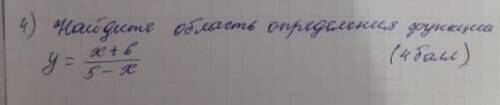 4) Найдите область определения функции
y = x+6 / 5-x (4 балл)